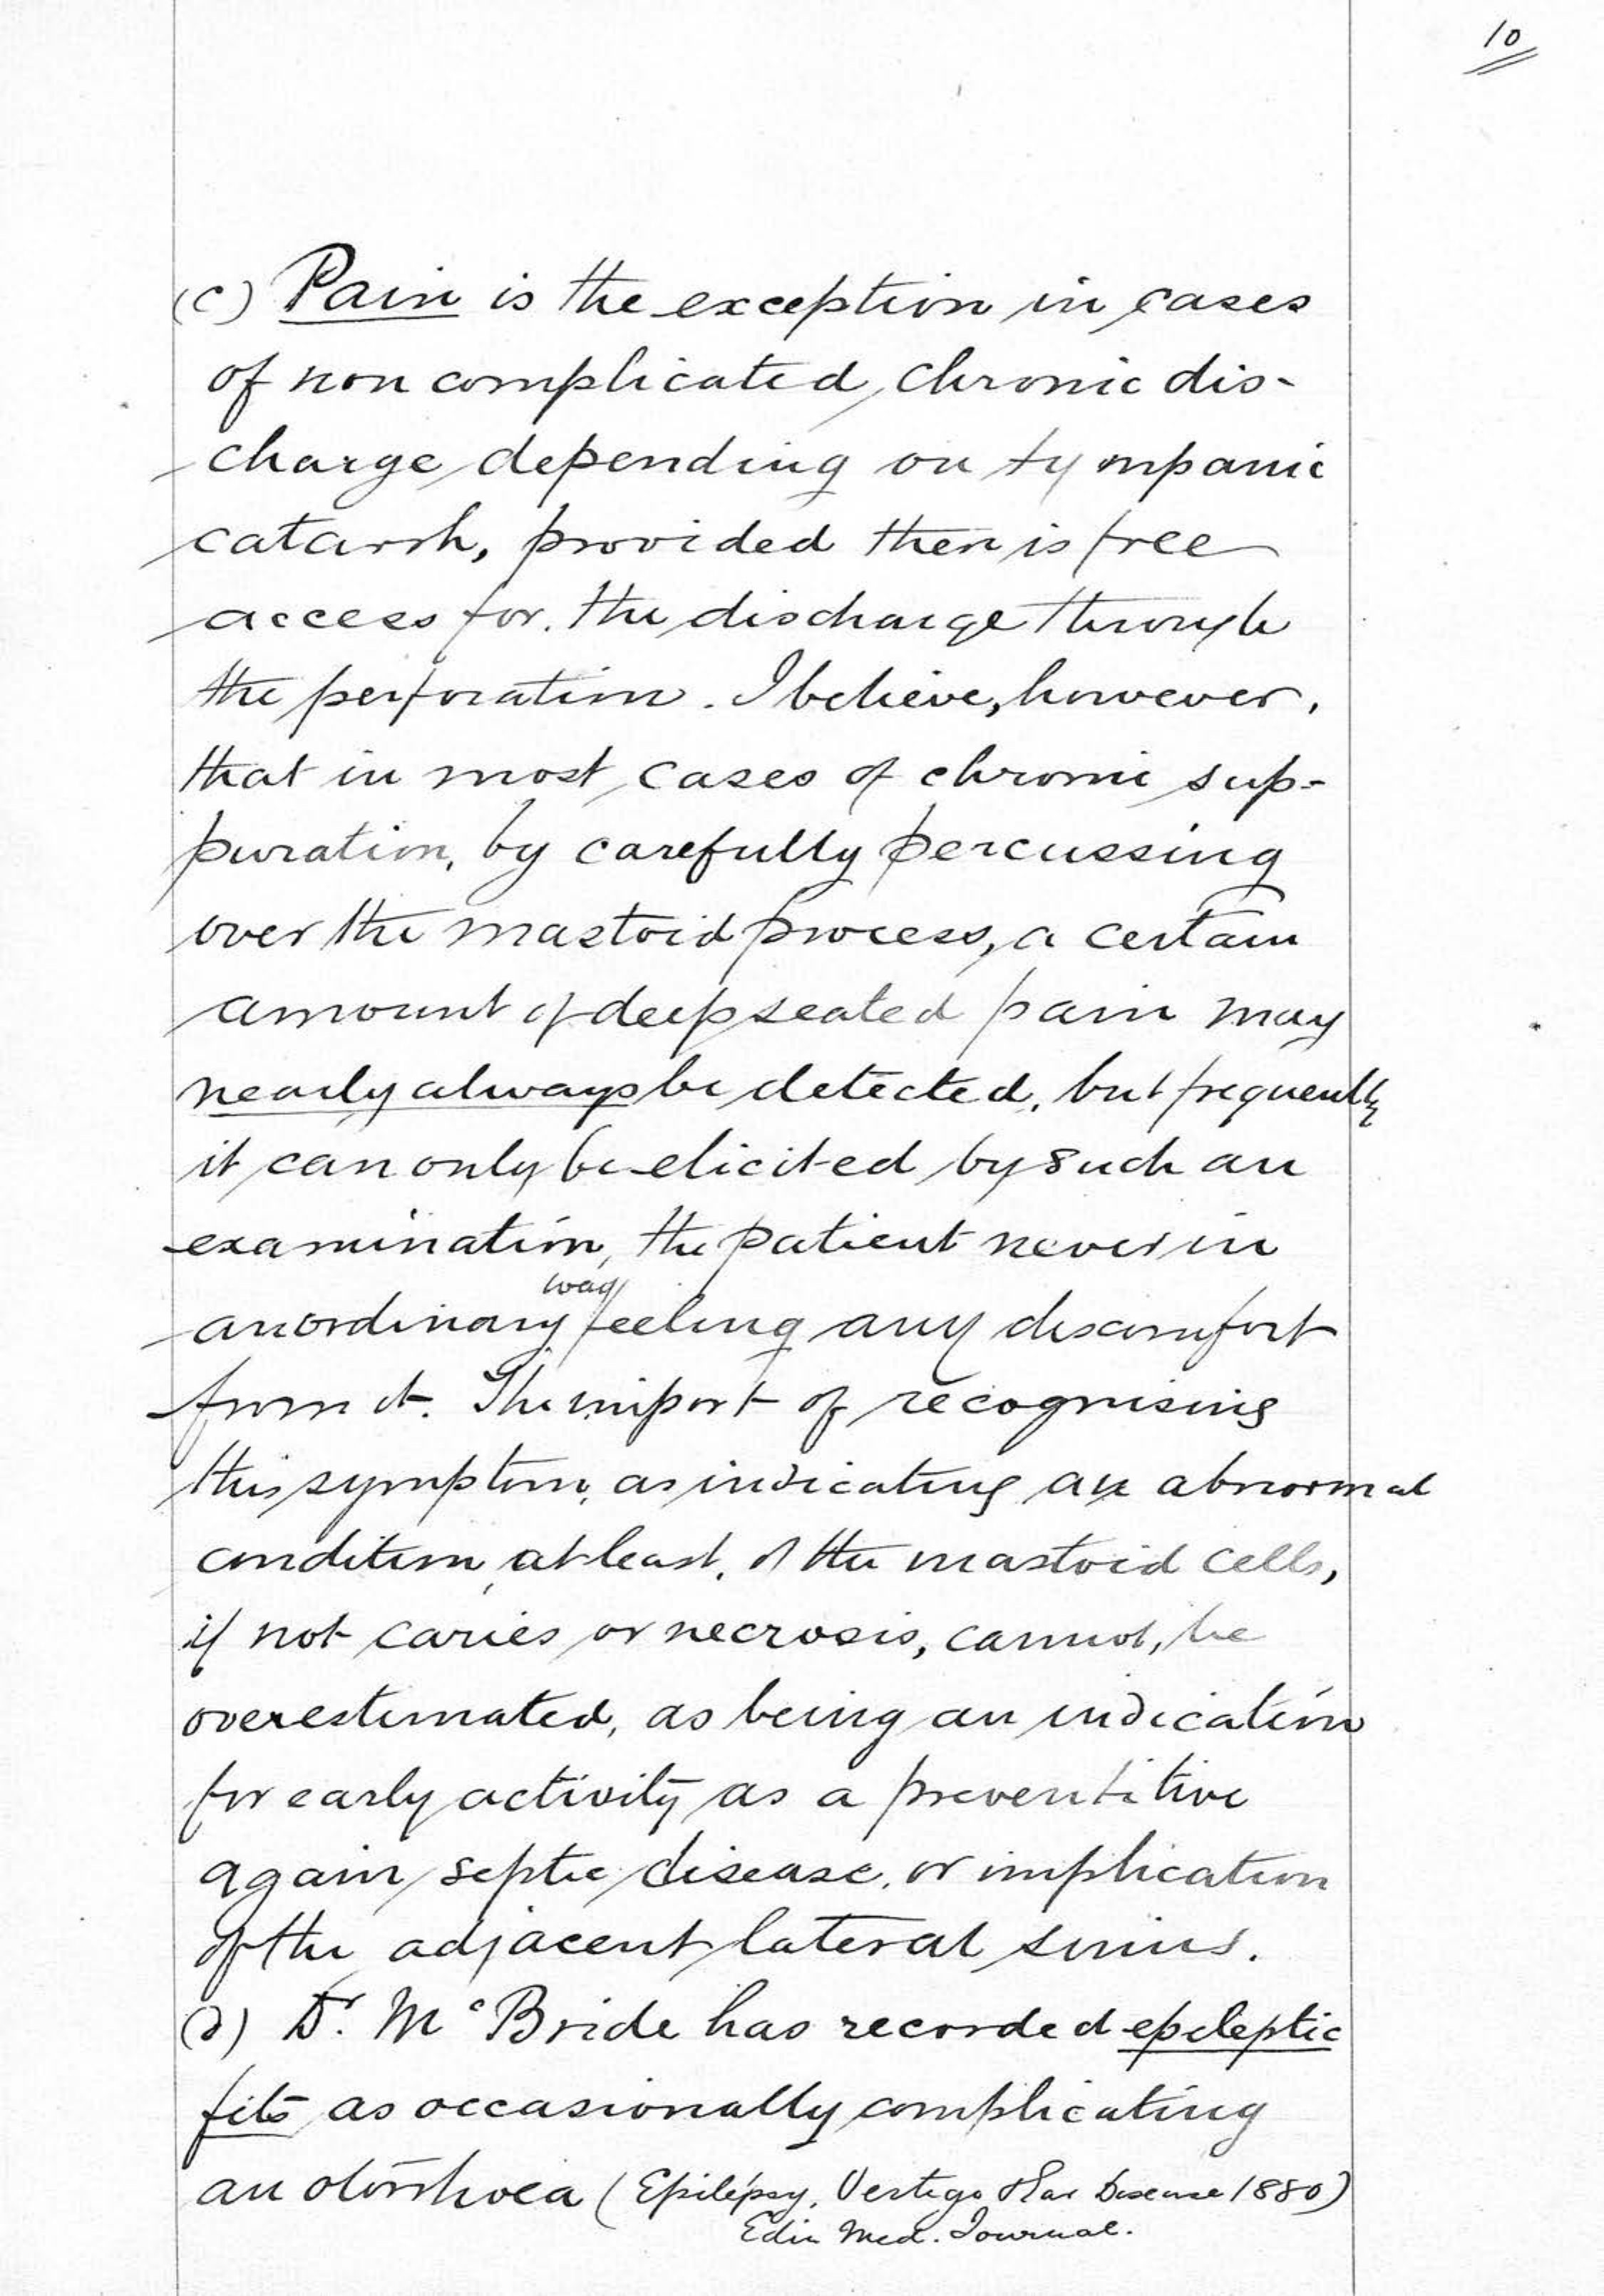 10
(c) Pain is the exception in cases
of non complicated chronic dis-
charge depending on tympanic
catarrh, provided there is free
access for the discharge through
the perforation. I believe, however,
that in most cases of chronic sup-
puration, by carefully percussing
over the mastoid process, a certain
amount of deepseated pain may
nearly always be detected, but frequently
it can only be elicited by such an
examination, the patient never in
way
an ordinary feeling any discomfort
from it. The import of recognising
this symptom, as indicating an abnormal
condition, at least, of the mastoid cells,
if not caries or necrosis, cannot, be
overestimated, as being an indication
for early activity as a preventitive
again septic disease, or implication
of the adjacent lateral sinus.
(d) Dr. McBride has recorded epileptic
fits as occasionally complicating
an otorrhoea (Epilepsy, Vertigo & Ear Disease 1880)
Edin Med. Journal.